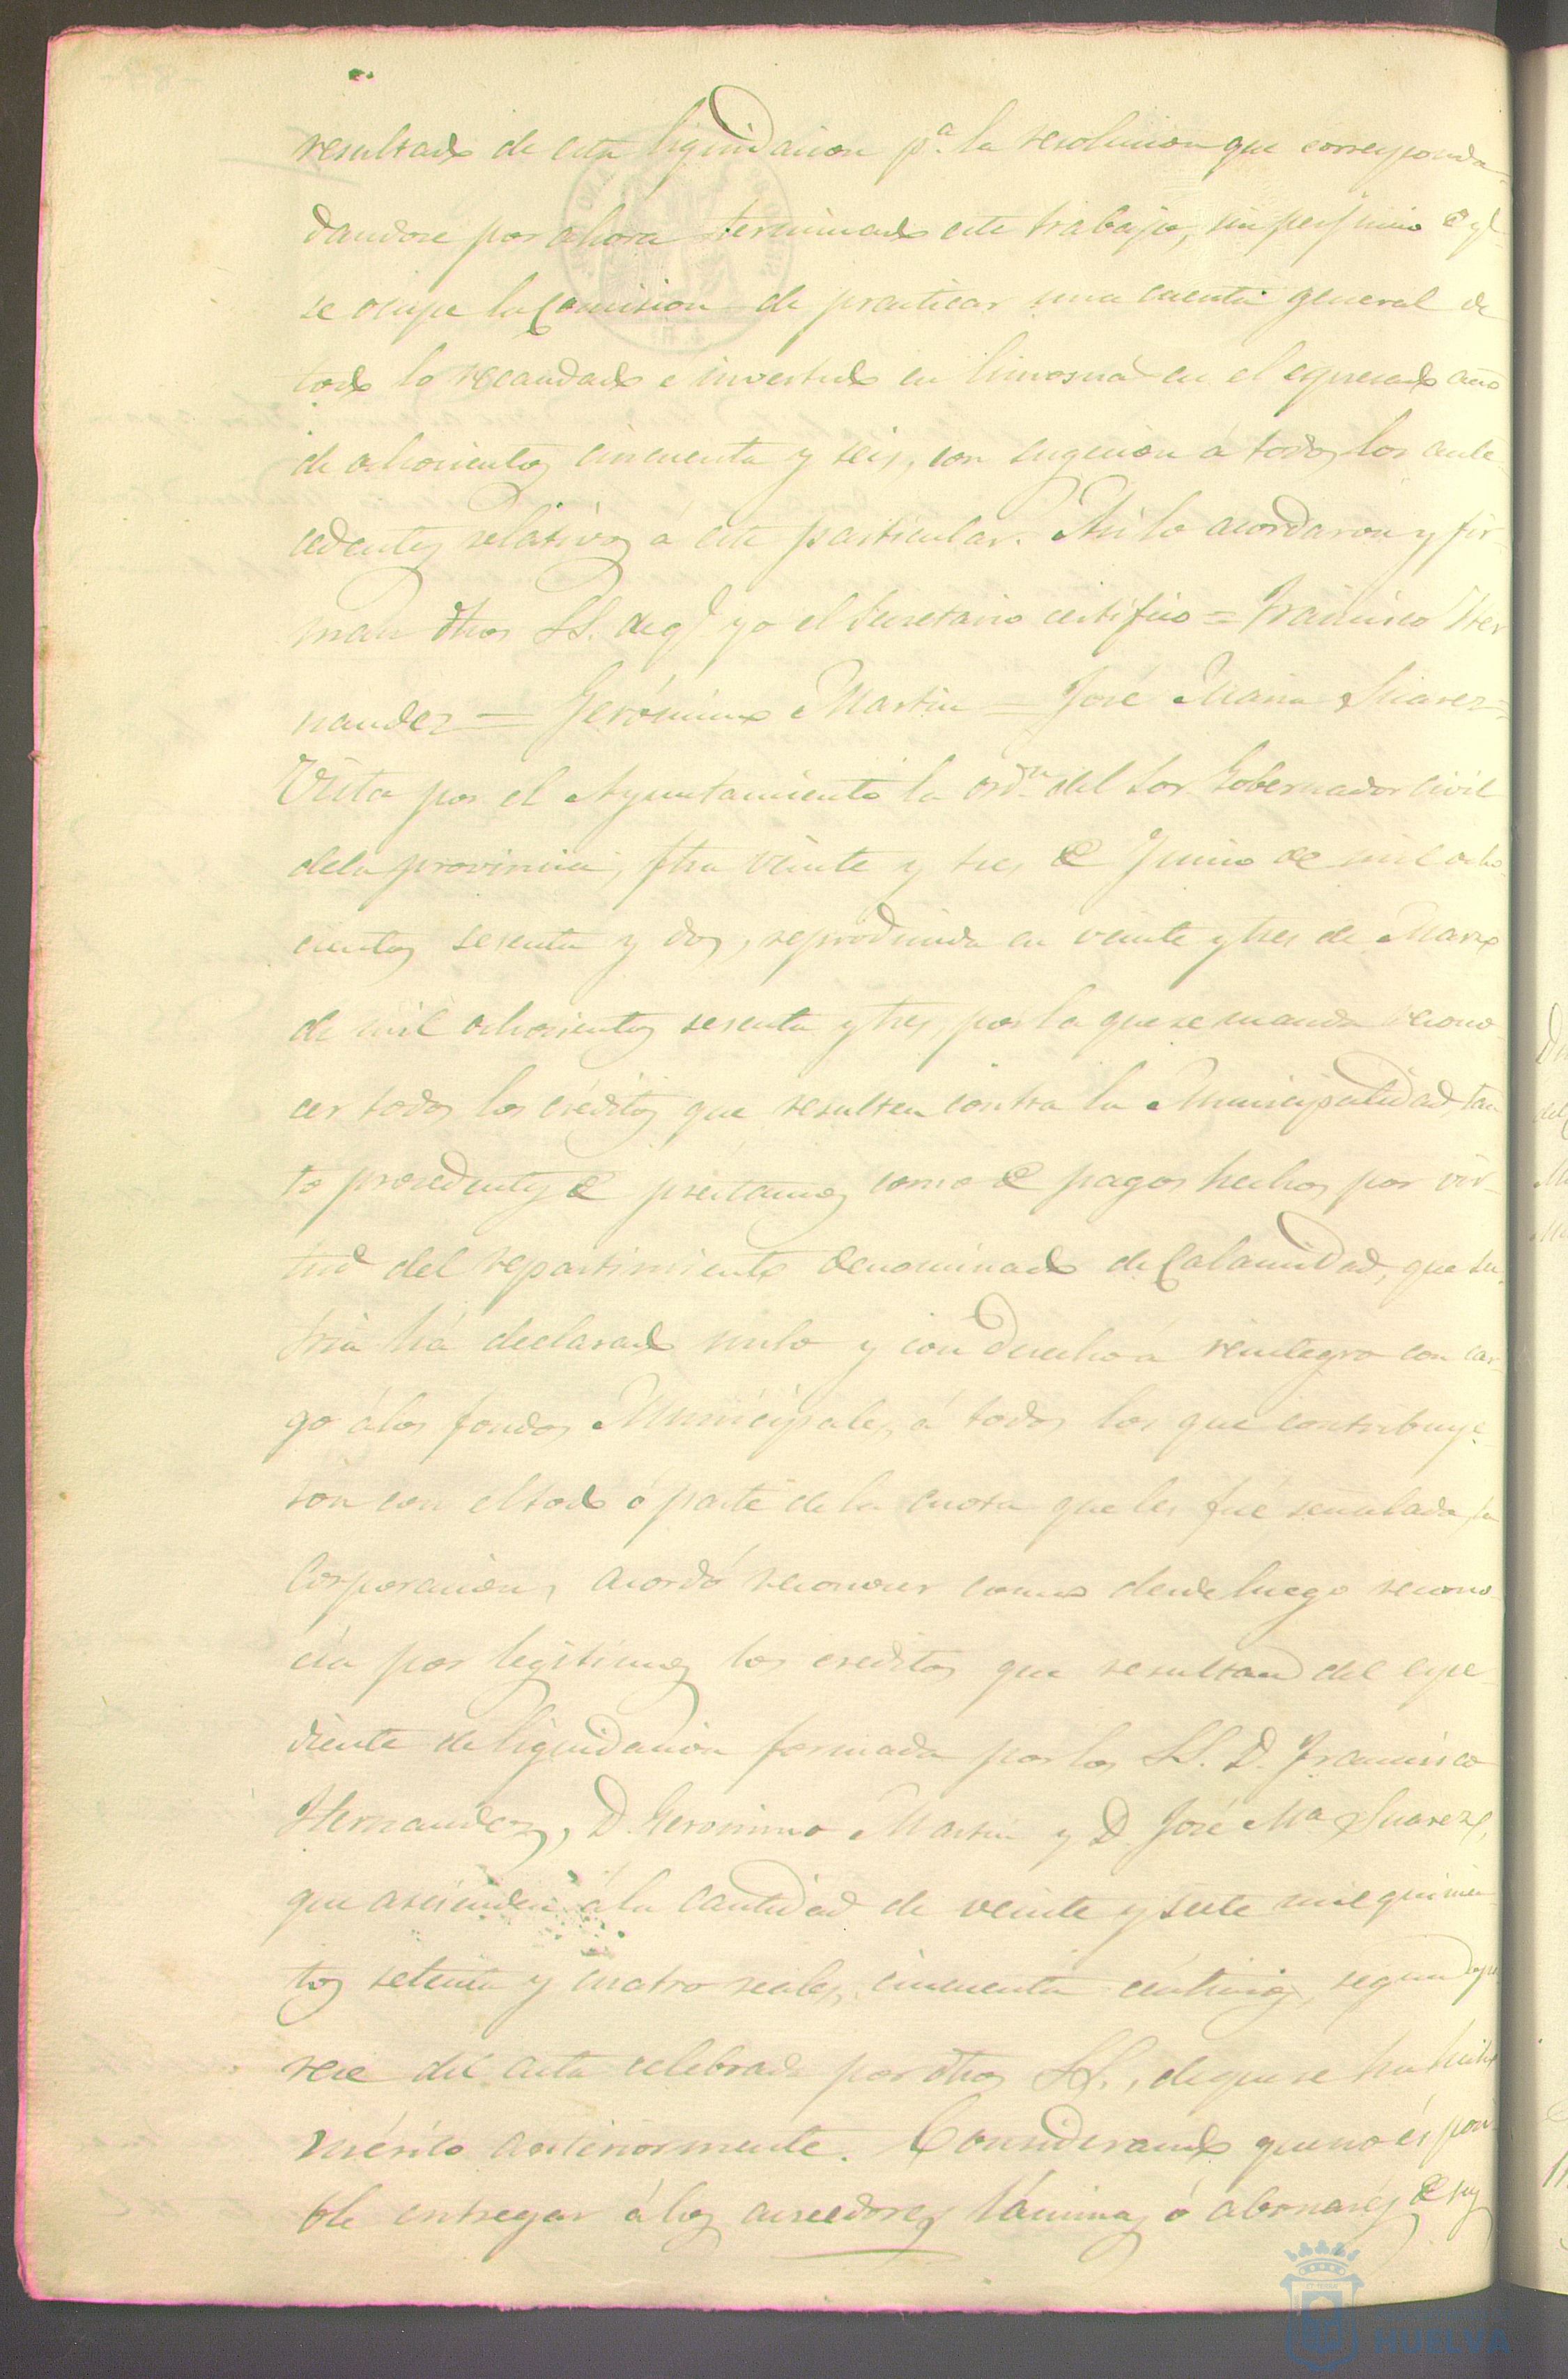 resultado de esta liquidacion p.ª la resolucion que corresponda
dandose por ahora terminado este trabajo, sin perjuicio de q.e
se ocupe la Comision de practicar una cuenta general de
todo lo recaudado e invertido en limosnas en el espresado año
de ochocientos cincuenta y seis, con sugecion á todos los ante
cedentes relativos á este particular. Asi lo acordaron y fir
man dhos SS. de q.e yo el Secretario certifico = Francisco Her
nandez = Gerónimo Martin = José Maria Suarez =
Vista por el Ayuntamiento la ord.n del Sor Gobernador Civil
dela provincia, fha veinte y tres de Junio de mil ocho
cientos sesenta y dos, reproducida en veinte y tres de Marzo
de mil ochocientos sesenta y tres, por la que se manda recono
cer todos los creditos que resulten contra la Municipalidad tan
to procedentes de prestamos como de pagos hechos por vir
tud del repartimiento denominado de Calamidad, que su
Sria há declarado nulo y con derecho a reintegro con car
go álos fondos Municipales, á todos los que contribuye
ron con el todo ó parte de la cuota que les fué señalada, la
Corporacion, acordó reconocer como desde luego recono
cia por legitimos los creditos que resultan del espe
diente de liquidacion formada por los SS. D. Francisco
Hernandez, D. Geronimo Martin y D. José Mª Suarez,
que ascienden á la cantidad de veinte y siete mil quinien
tos setenta y cuatro reales, cincuenta centimos, segun apa
rece del acta celebrada por dhos SS., de que se ha hecho
mérito anteriormente. Considerando que no és posi
ble entregar á los acreedores láminas ó abonarés de sus
HUELVA